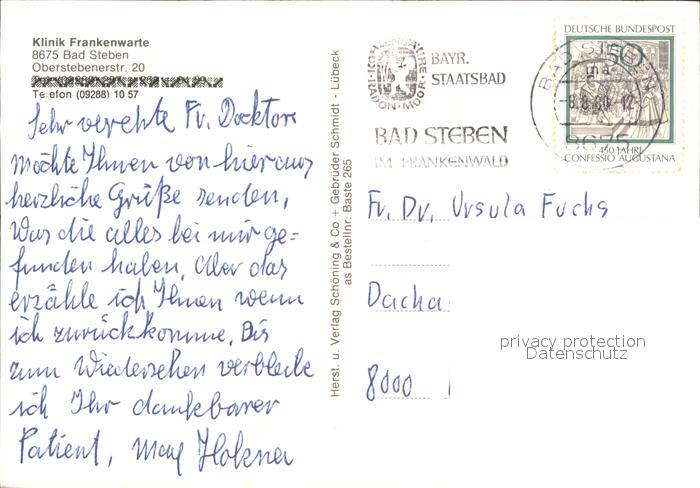 Klinik Frankenwarte
8675 Bad Steben
Oberstebenerstr. 20
Te efon (09288) 10 57
Sehr verehrte Fr. Doktor
möchte Ihnen von hier aus
herzliche Grüße senden,
Was die alles bei mir ge=
funden haben, Aber das
erzähle ich Ihnen wenn
ich zurückkomme, Bis
zum Wiedersehen verbleibe
ich Ihr dankbarer
Patient, Max
Herst. u. Verlag Schöning & Co + Gebrüder Schmidt - Lübeck
as Bestellnr. Baste 265
KOHLENSÄURE
RADON · MOOR
BAYR.
STAATSBAD
BAD STEBEN
IM FRANKENWALD
DEUTSCHE BUNDESPOST
50
BAD STEBEN
-8.8.80-12
8675
450 JAHRE
CONFESSIO AUGUSTANA
Fr. Dr. Ursula Fuchs
Dacha
8000
privacy protection
Datenschutz